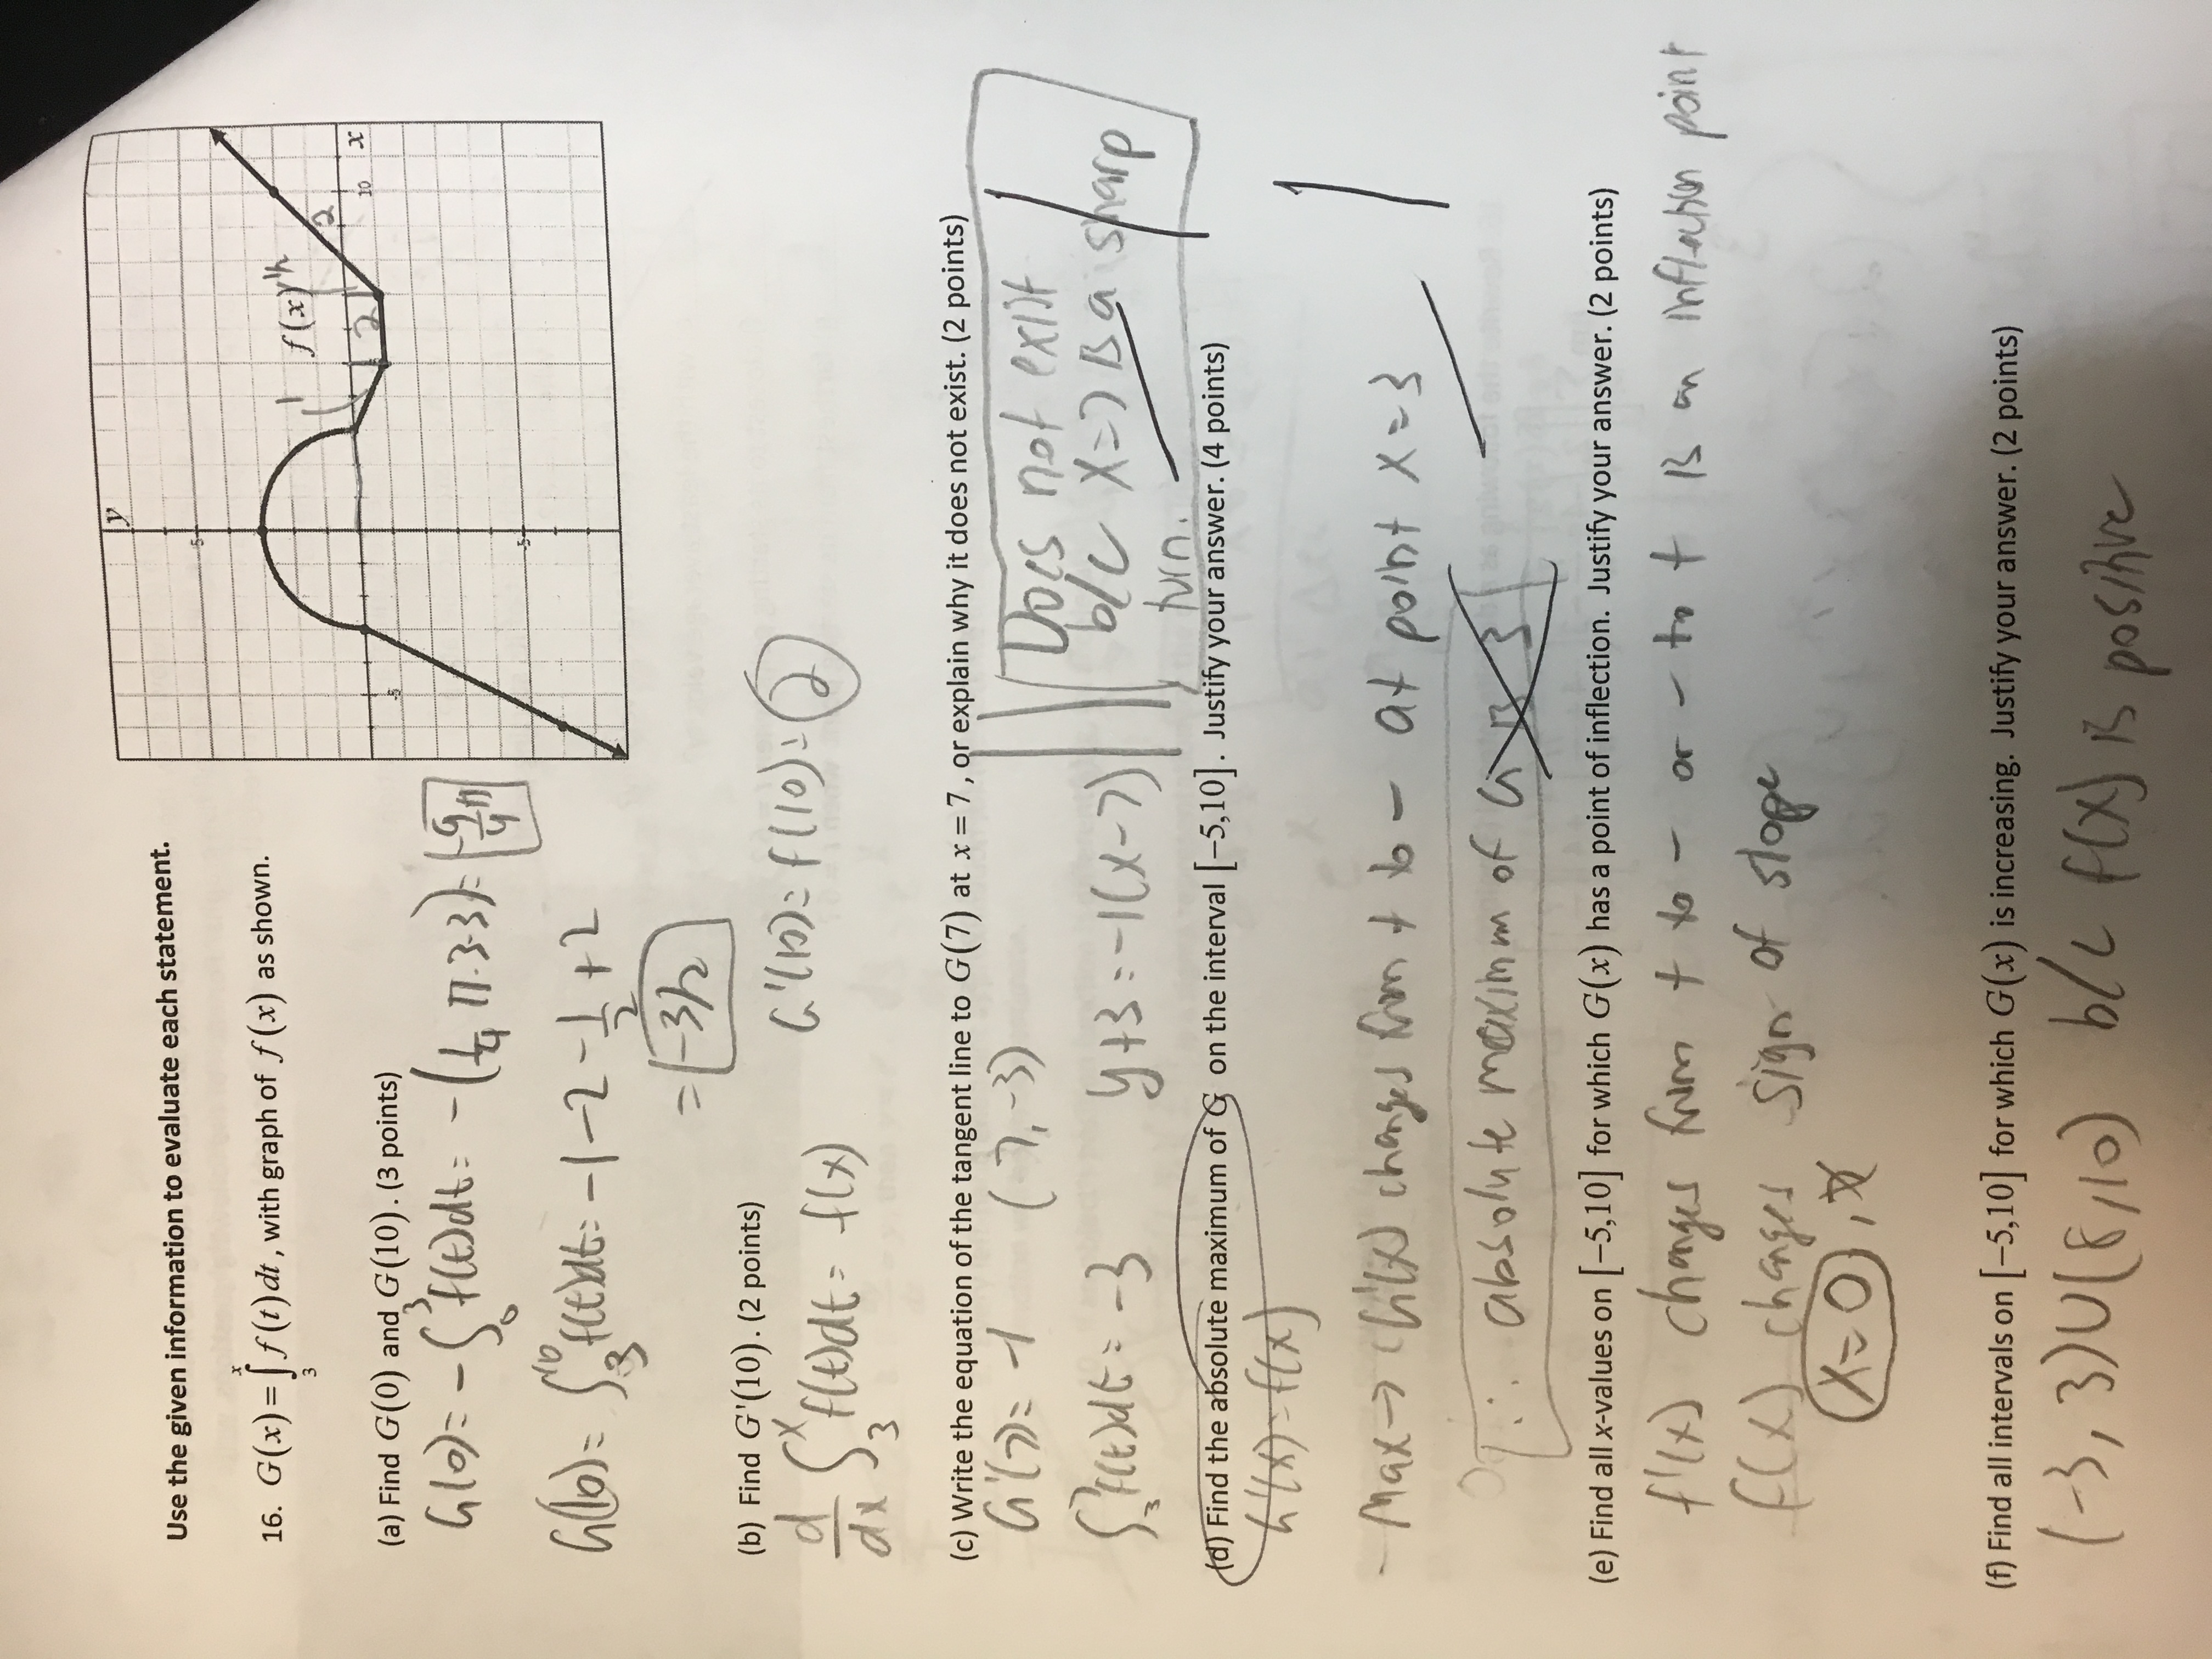 y
5
Use the given information to evaluate each statement.
16. G(x) = ∫₃ˣ f(t) dt , with graph of f(x) as shown.
1 f(x) 1/2
2 2
-5 10 x
-5
(a) Find G(0) and G(10). (3 points)
G(0) = -∫₀³ f(t)dt = -(1/4 π·3·3) = -9/4 π
G(10) = ∫₃¹⁰ f(t)dt = -1-2-1/2+2
= -3/2
(b) Find G'(10). (2 points)
d/dx ∫₃ˣ f(t)dt = f(x) G'(10) = f(10) = 2
(c) Write the equation of the tangent line to G(7) at x = 7, or explain why it does not exist. (2 points)
G'(7) = -1 (7, -3) Does not exist
b/c x=7 is a sharp
∫₃⁷ f(t)dt = -3 y+3 = -1(x-7)
turn.
(d) Find the absolute maximum of G on the interval [-5,10]. Justify your answer. (4 points)
G'(x) = f(x)
- Max → G'(x) changes from + to - at point x = 3
∴ absolute maximum of G is 3
(e) Find all x-values on [-5,10] for which G(x) has a point of inflection. Justify your answer. (2 points)
f'(x) changes from + to - or - to + is an inflection point
f(x) changes sign of slope
x = 0 ,
(f) Find all intervals on [-5,10] for which G(x) is increasing. Justify your answer. (2 points)
(-3, 3)∪(8,10) b/c f(x) is positive